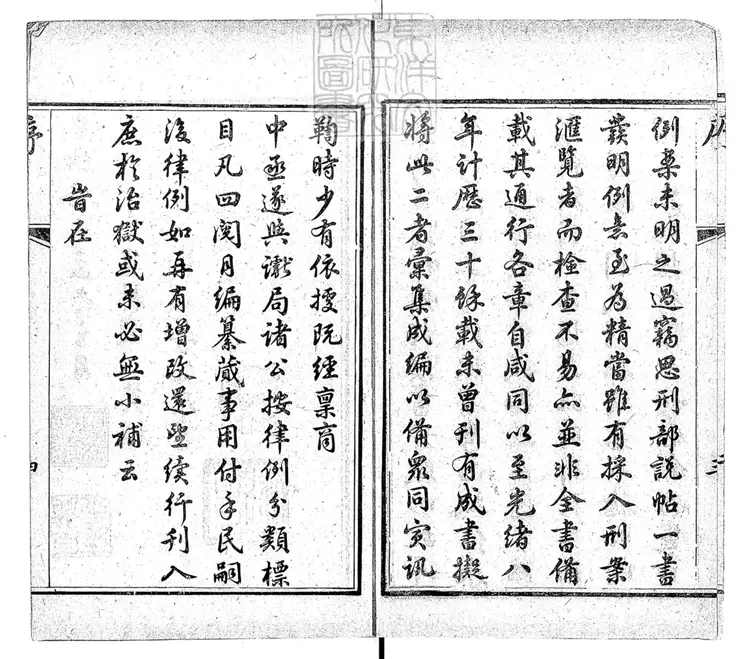 序
三
例案未明之過竊思刑部說帖一書
爰明例意至為精當雖有採入刑案
滙覽者而檢查不易亦並非全書備
載其通行各章自咸同以至光緒八
年計歷三十餘載未曾刊有成書擬
將此二者彙集成編以備眾同寅訊
鞫時少有依據既經稟商
中丞遂與讞局諸公按律例分類標
目凡四閱月編纂蕆事用付手民嗣
後律例如再有增改還望續行刊入
庶於治獄或未必無小補云
旹在
序
四